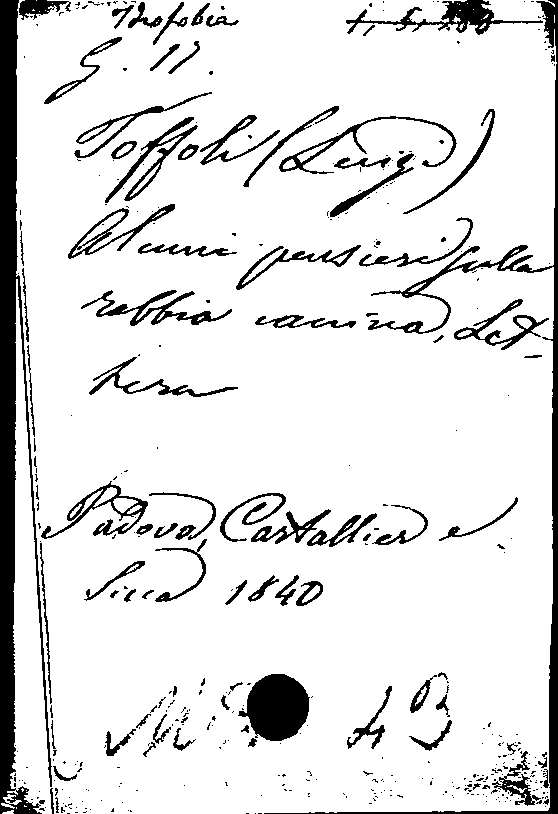 Idrofobia
1, 5, 200
G. 17.
Toffoli (Luigi)
Alcuni pensieri sulla
rabbia canina, Let-
tera
Padova, Cartallier e
Sicca 1840
4 B